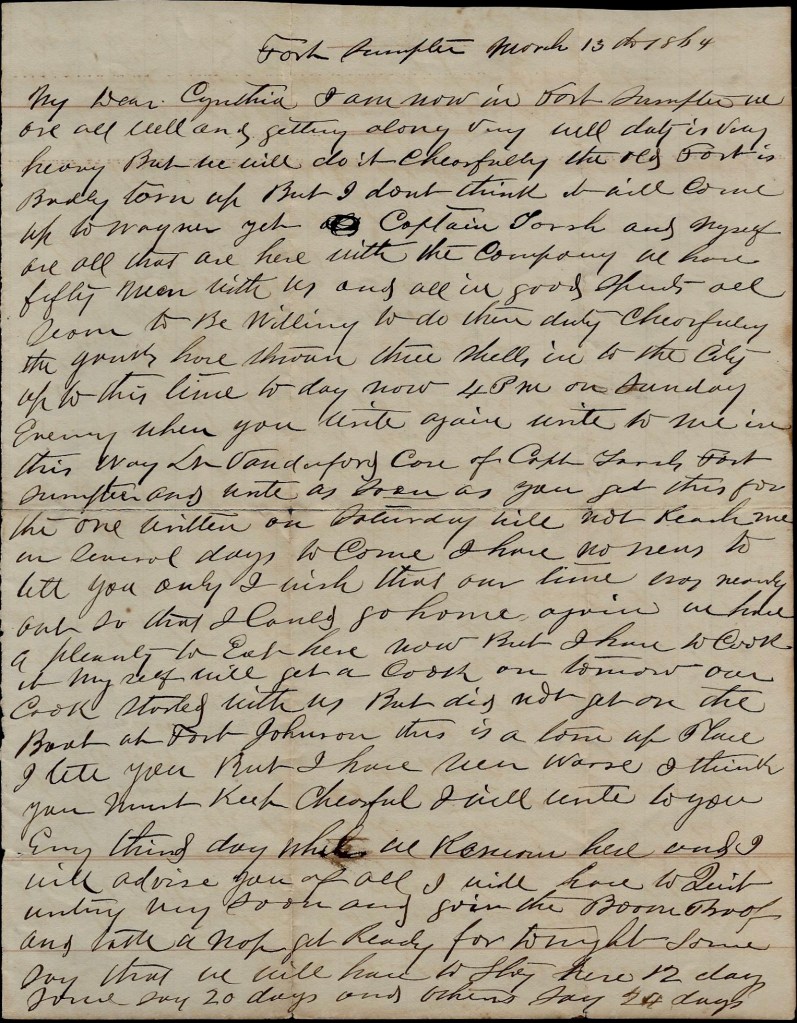 Fort Sumpter March 13th 1864
My Dear Cynthia I am now in Fort Sumpter we
are all well and getting along very well duty is very
heavy But we will do it Chearfully the old Fort is
Badly torn up But I dont think it will Come
up to Wagner yet Captain Tarsh and Myself
are all that are here with the Company we have
fifty Men with us and all in good Spirits all
Seam to Be Willing to do there duty Chearfully
the yanks have thrown three Shells in to the City
up to this time to day now 4 Pm on Sunday
Evening when you write again write to me in
this Way Lt Vanderford Care of Capt Tarsh Fort
Sumpter and write as Soon as you get this for
the one written on Saturday will not Reach me
in Several days to Come I have no news to
tell you only I wish that our time was nearly
out so that I Could go home again we have
a pleanty to Eat here now But I have to Cook
it Myself will get a Cook on tomorow our
Cook started with us But did not get on the
Boat at Fort Johnson this is a torn up Place
I tell you But I have seen Worse I think
you Must Keep Chearful I will write to you
Evry third day while we Remain here and I
will advise you of all I will have to Quit
writing very Soon and go in the Boom Proof
and take a nap get Ready for to night Some
say that we will have to stay here 12 days
Some say 20 days and others say 24 days